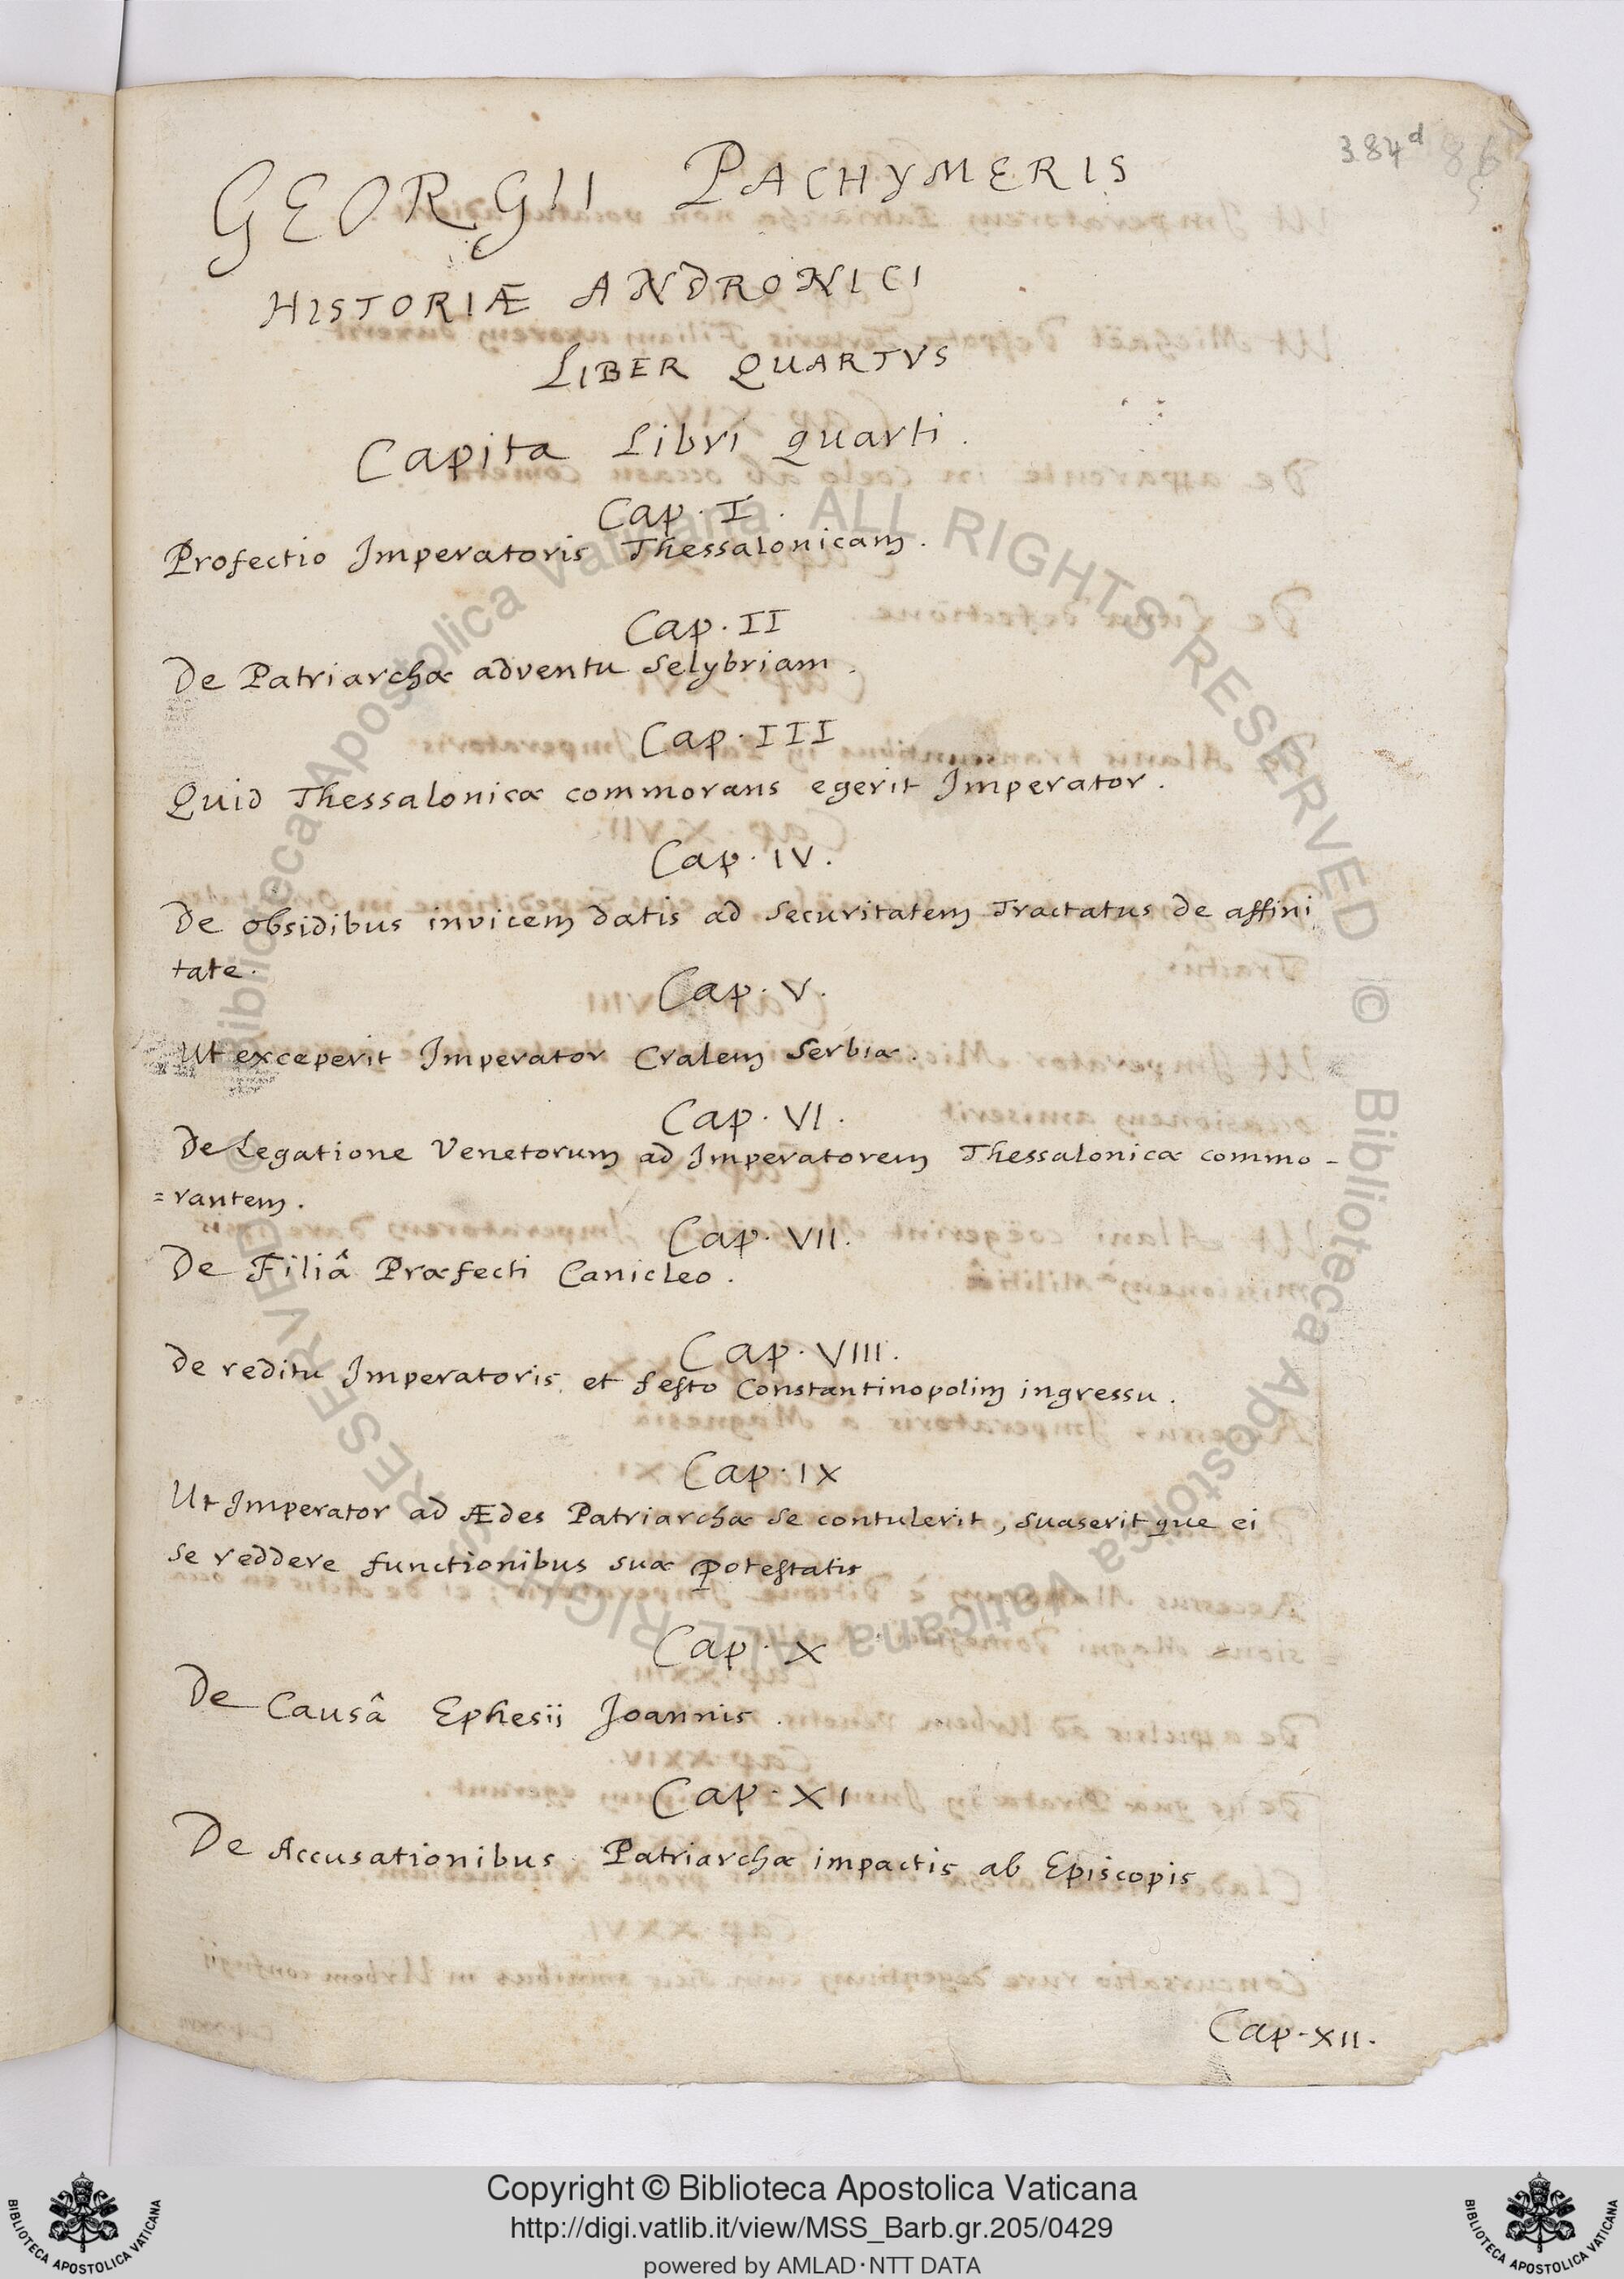 384d
GEORGII PACHYMERIS
HISTORIÆ ANDRONICI
LIBER QUARTVS
Capita Libri quarti.
Cap. I.
Profectio Imperatoris Thessalonicam.
Cap. II
De Patriarchæ adventu Selybriam.
Cap. III
Quid Thessalonicæ commorans egerit Imperator.
Cap. IV.
De obsidibus invicem datis ad Securitatem Tractatus de affini
tate.
Cap. V.
Ut exceperit Imperator Cralem Serbiæ.
Cap. VI.
De Legatione Venetorum ad Imperatorem Thessalonicæ commo-
=rantem.
Cap. VII.
De Filiâ Præfecti Canicleo.
Cap. VIII.
De reditu Imperatoris et festo Constantinopolim ingressu.
Cap. IX
Ut Imperator ad Ædes Patriarchæ se contulerit, suaseritque ei
se reddere functionibus suæ potestatis
Cap. X
De Causâ Ephesii Joannis.
Cap. XI
De Accusationibus Patriarchæ impactis ab Episcopis
Cap. XII.
© Biblioteca Apostolica Vaticana ALL RIGHTS RESERVED © Biblioteca Apostolica Vaticana ALL RIGHTS RESERVED
Copyright © Biblioteca Apostolica Vaticana
http://digi.vatlib.it/view/MSS_Barb.gr.205/0429
powered by AMLAD·NTT DATA
BIBLIOTECA APOSTOLICA VATICANA
BIBLIOTECA APOSTOLICA VATICANA